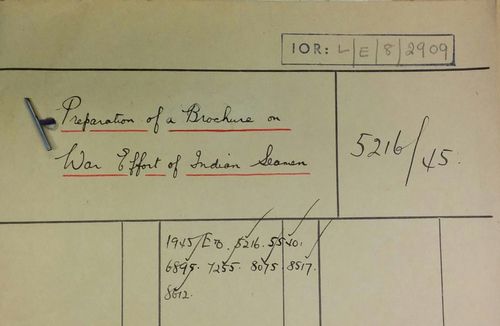 IOR: L/E/8/2909
Preparation of a Brochure on
War Effort of Indian Seamen
5216/45.
1945/E&O. 5216. 5540.
6895. 7255. 8075. 8517.
8612.